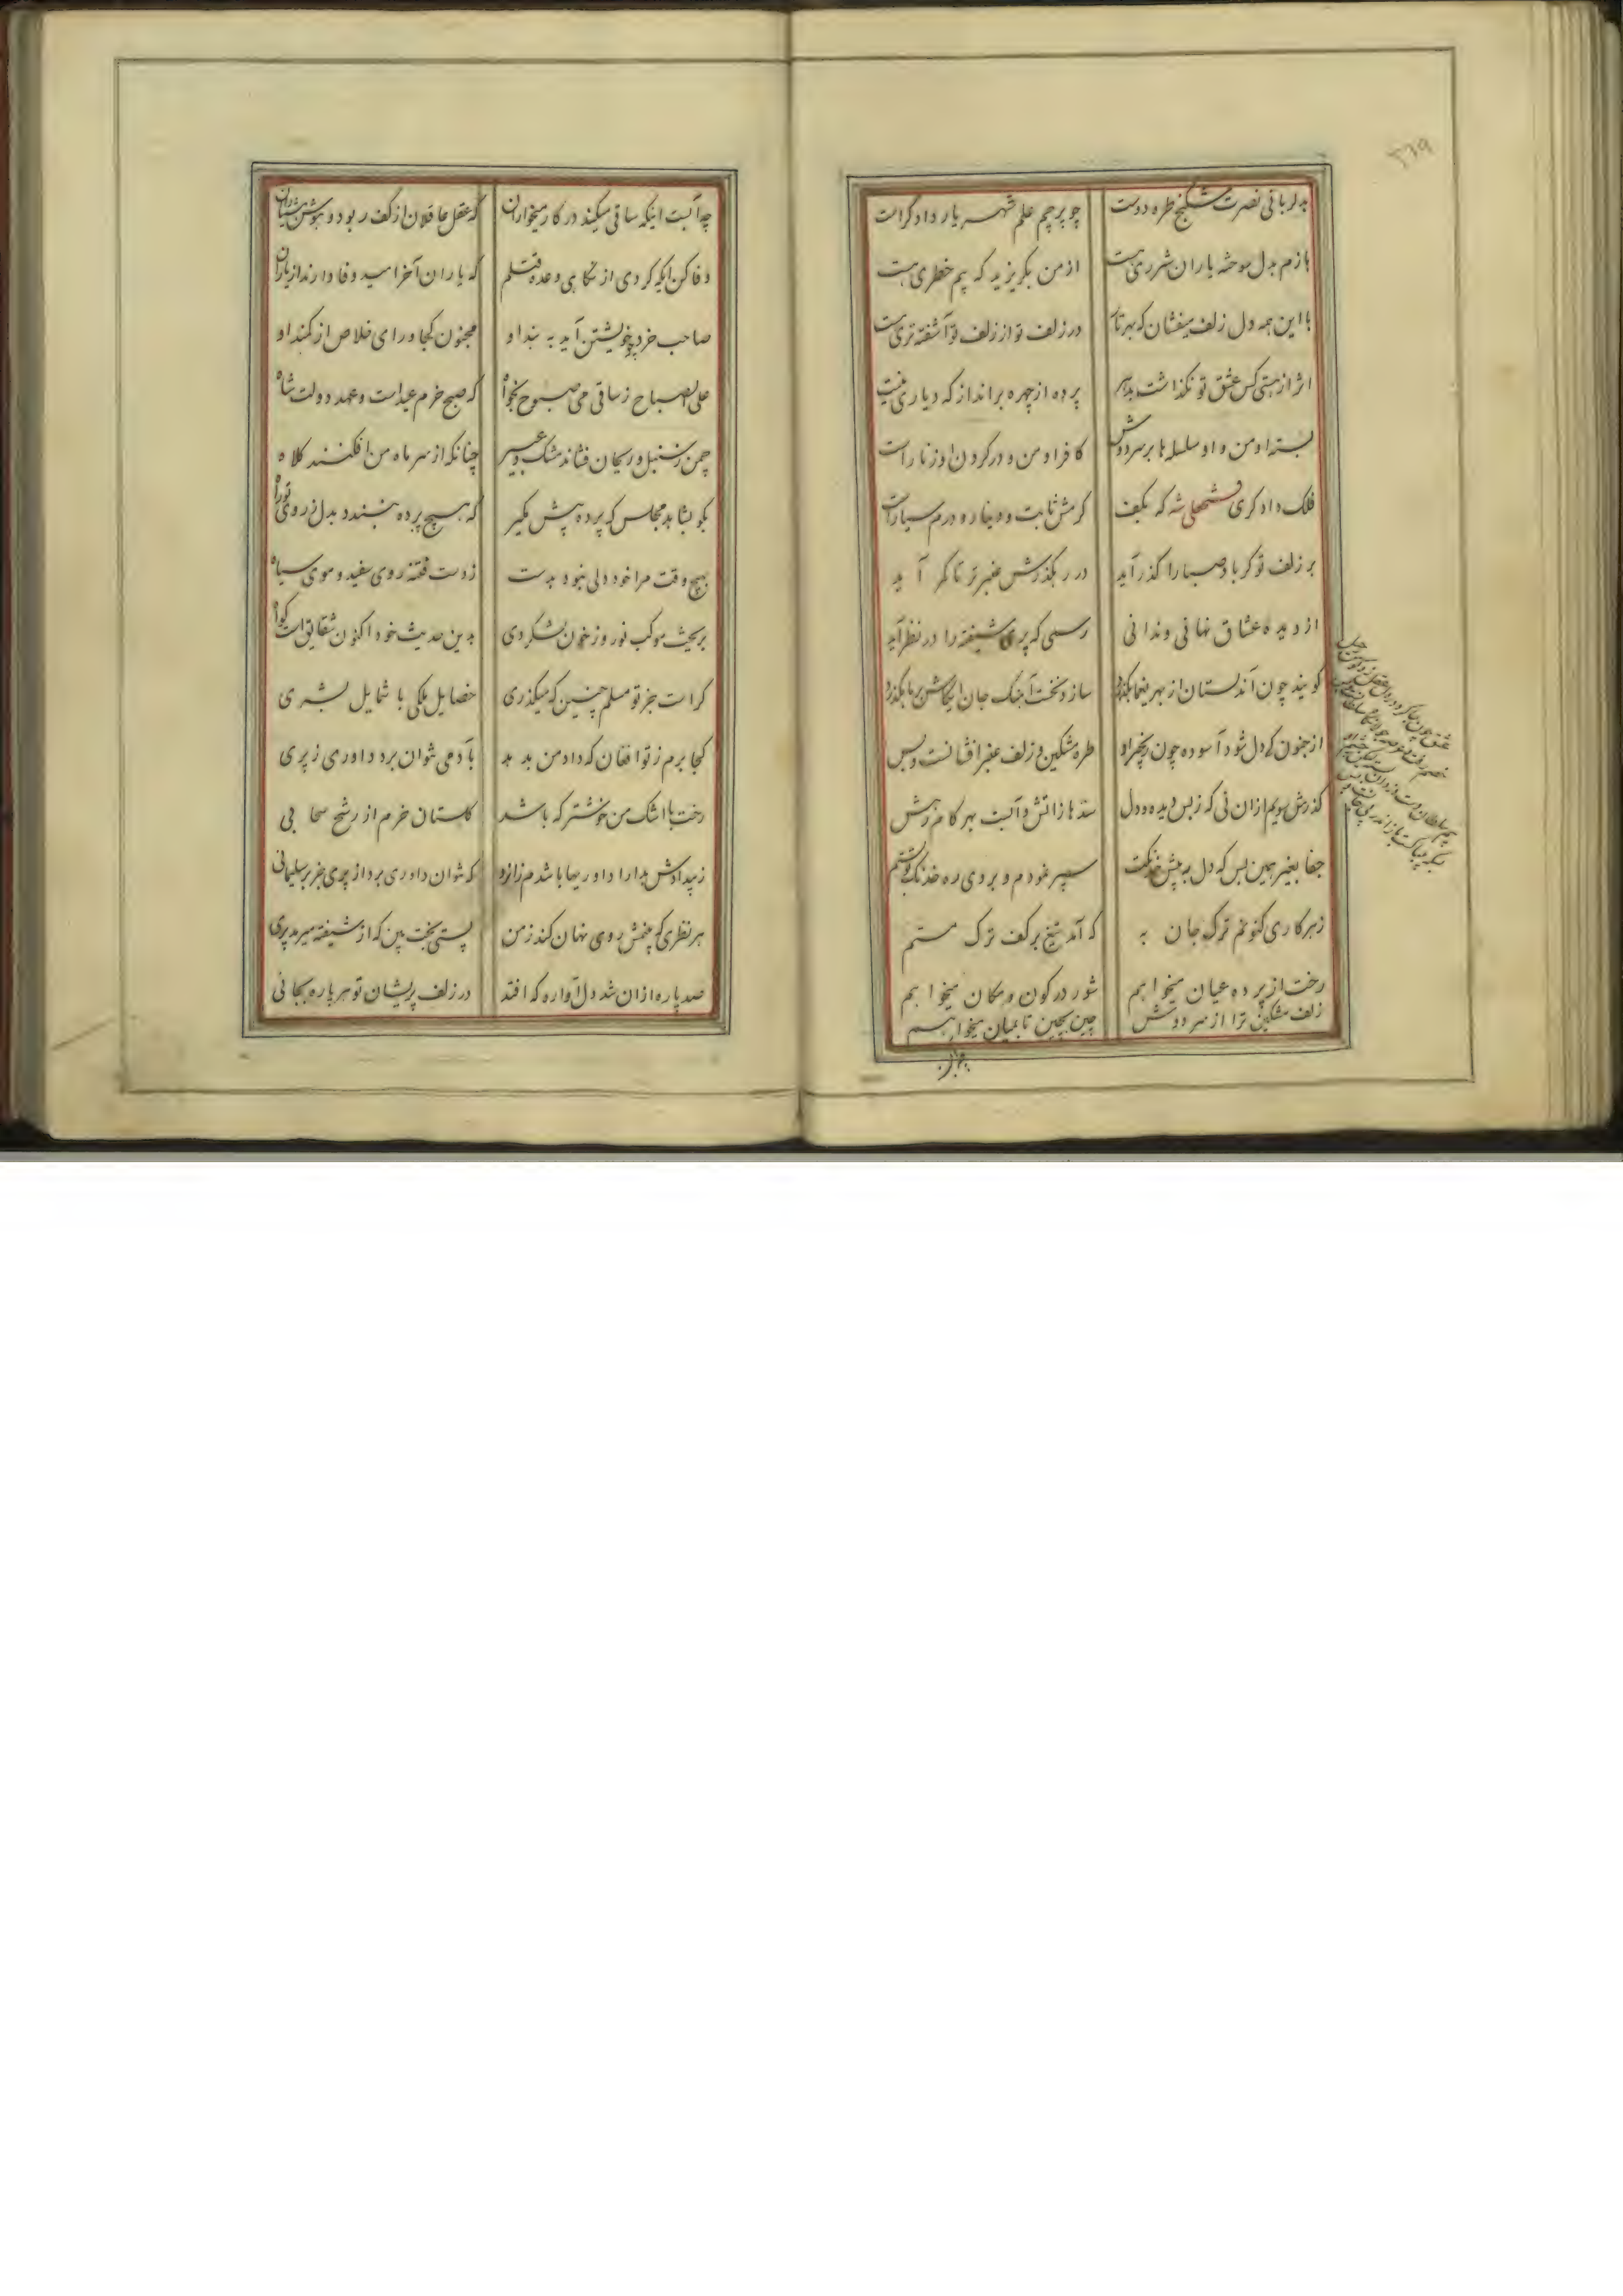 ۵۶۹
بدلربائی نصرت شکنج طره دوست چو پرچم علم شهریار دادگر است
بازم بدل سوخته یاران شرری هست از من بگریزید که بیم خطری هست
با این همه دل زلف میفشان که بهر تار در زلف تو از زلف تو آشفته تری هست
اثر از هستی کس عشق تو نگذاشت بدهر پرده از چهره برانداز که دیاری نیست
بسته او من و او سلسله ها بر سر دوش کافر او من و در گردن او زنار است
فلک دادگری فتحعلی شه که بکف کرمش ثابت و دینار و درم سیار است
بر زلف تو گر باد صبا را گذر آید در رهگذرش عنبر تر تا کمر آید
از دیده عشاق نهانی و ندانی رسمی که پری شیفته را در نظر آید
گویند چون آن دلستان از بهر یغما بگذرد سازد نخست آهنگ جان ایکاش بر ما بگذرد
از جنون کی دل شود آسوده چون زنجیر او طره مشکین و زلف عنبر افشانست و بس
گذرش پویم ازان نی که ز بس دیده و دل سدها ز آتش و آبست بهر گام رهش
جفا بغیر همین بس که دل به پیش خدنگت سپر نمودم و بر وی ره خدنگ تو بستم
ز هر کاری کنونم ترک جان به که آمد تیغ بر کف ترک مستم
رخت از پرده عیان میخواهم شور در کون و مکان میخواهم
زلف مشکین ترا از سر دوش چین بچین تا بمیان میخواهم
چه آبست اینکه ساقی میکند در کار میخواران که عقل عاقلان از کف ربود و هوش هشیاران
وفا کن ایکه کردی از نگاهی وعده قتلم که یاران آخر امید وفا دارند از یاران
صاحب خرد چو خویشتن آید به بند او مجنون کجا و رای خلاص از کمند او
علی الصباح ز ساقی می صبوح بخواه که صبح خرم عیدست و عهد دولت شاه
چمن ز سنبل و ریحان فشاند مشک و عبیر چنانکه از سر ماه من افکنند کلاه
بگو بشاهد مجلس که پرده پیش مگیر که هیچ پرده نبندد بدل ز روی تو راه
بهیچ وقت مرا خود دلی نبود بدست ز دست فتنه روی سفید و موی سیاه
بریخت موکب نوروز خون لشکر دی بدین حدیث خود اکنون شقایق است گواه
کراست جز تو مسلم چنین که میگذری خصایل ملکی با شمایل بشری
کجا برم ز تو افغان که داد من بدهد بآدمی نتوان برد داوری ز پری
رخت با اشک من خوشتر که باشد گلستان خرم از رشح سحابی
ز بیدادش بدارا داوریها باشدم زانرو که نتوان داوری برد از پری جز بر سلیمانی
هر نظری که چشمش روی نهان کند ز من پستی بخت بین که از شیفته میرمد پری
صد پاره ازان شد دل آواره که افتد در زلف پریشان تو هر پاره بجائی